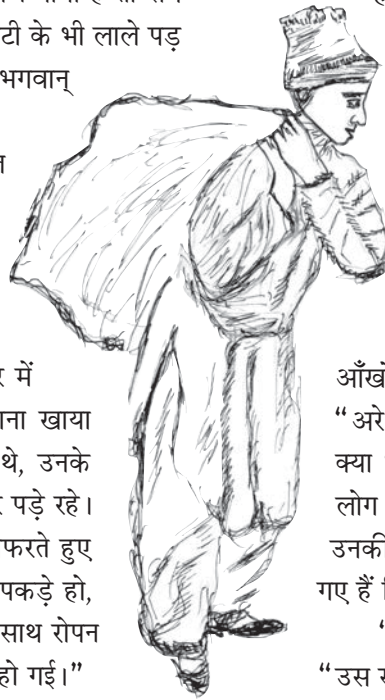 टी के भी लाले पड़
भगवान्
र में
ाना खाया
थे, उनके
पड़े रहे।
फरते हुए
पकड़े हो,
साथ रोपन
हो गई।”
आँखो
“अरे
क्या
लोग
उनकी
गए हैं
“उस